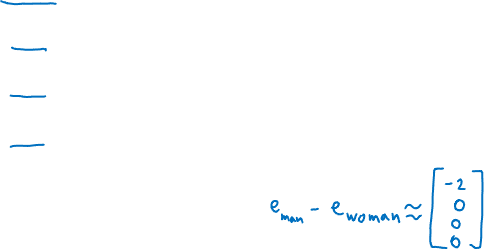 e_man - e_woman ≈ [-2
0
0
0]